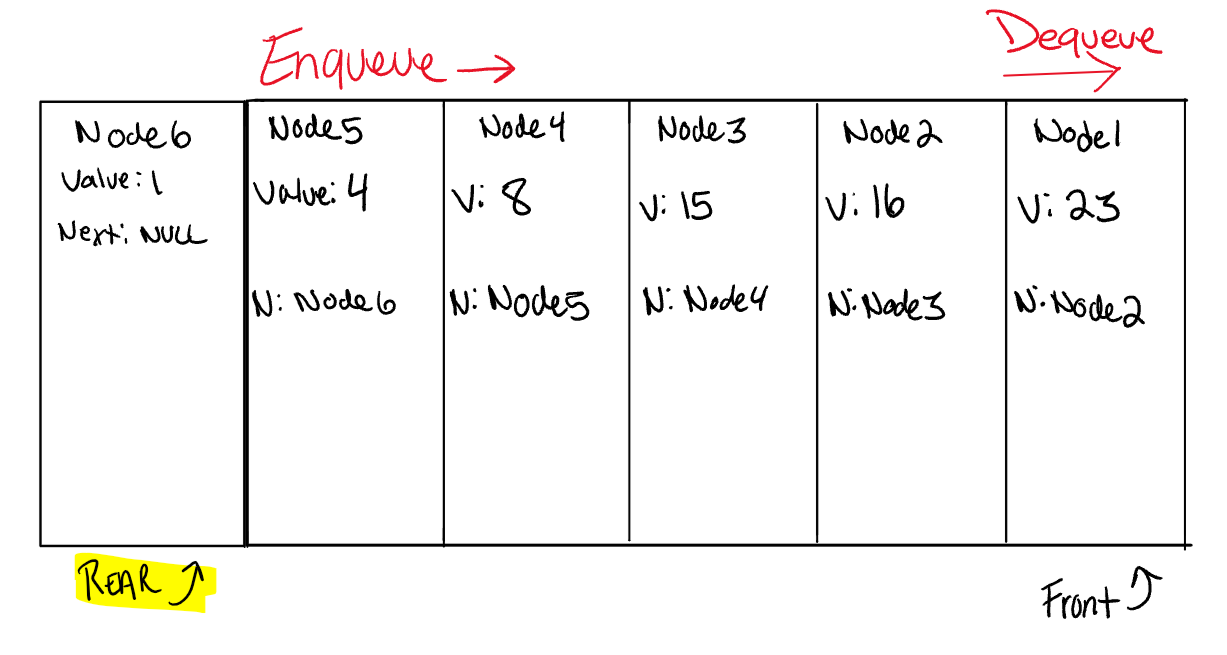 Enqueue →
Dequeue
Node6
Value: 1
Next: NULL
Node5
Value: 4
N: Node6
Node4
V: 8
N: Node5
Node3
V: 15
N: Node4
Node2
V: 16
N: Node3
Node1
V: 23
N: Node2
REAR
Front